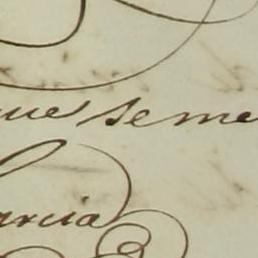 ue se me
arcia